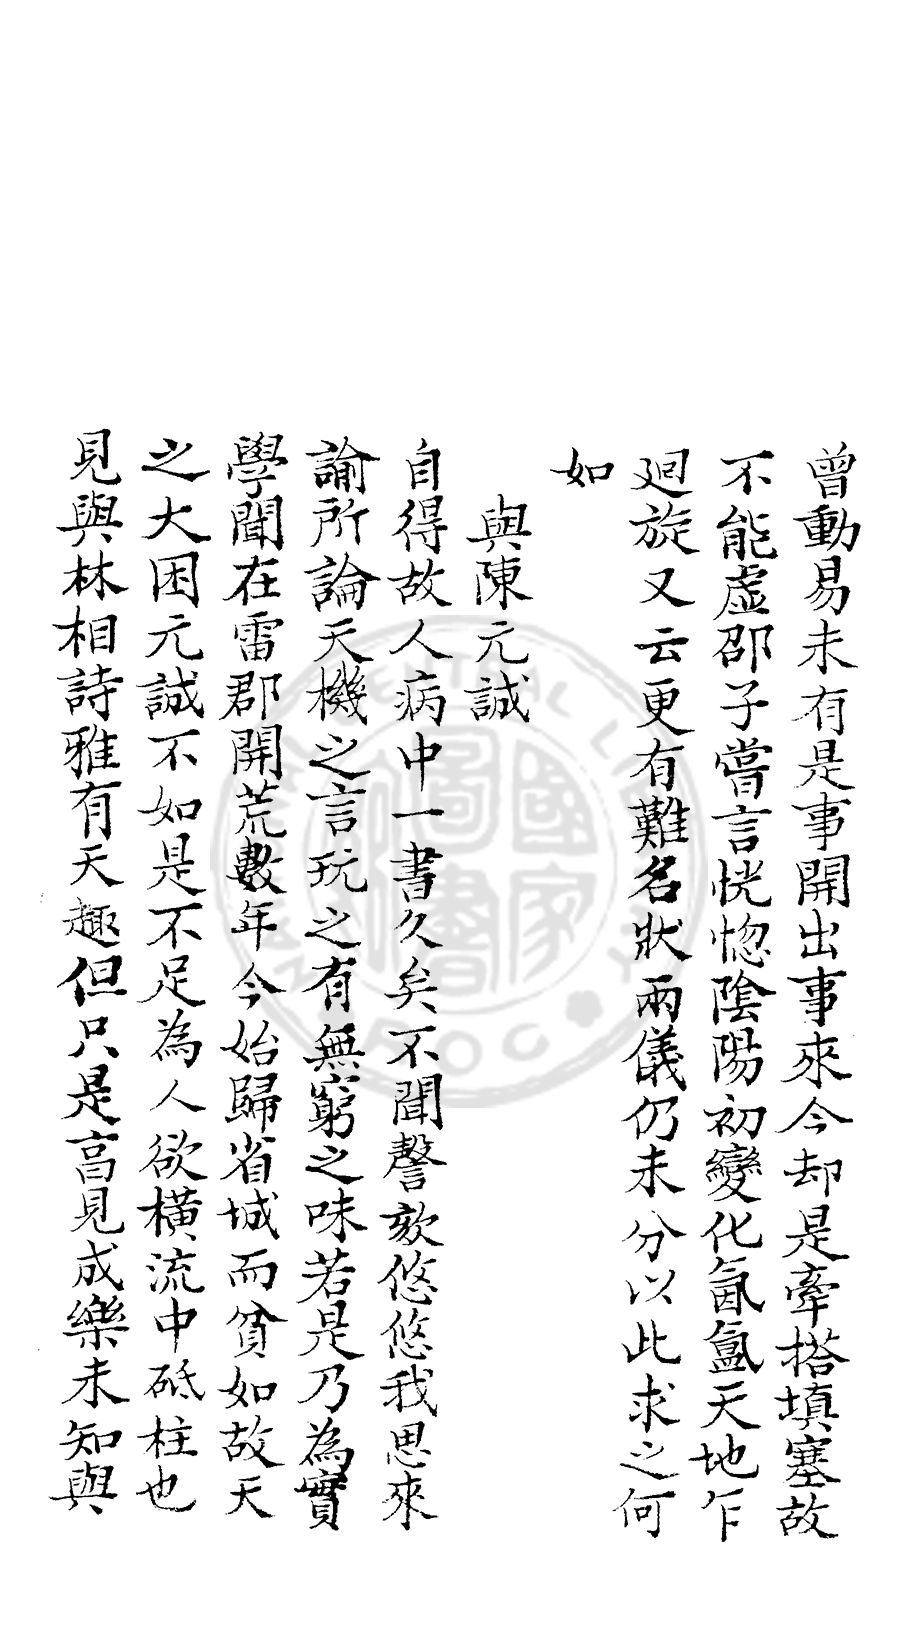 曾動易未有是事開出事來今却是牽搭填塞故
不能虛邵子嘗言恍惚陰陽初變化氤氳天地乍
廻旋又云更有難名狀兩儀仍未分以此求之何
如
與陳元誠
自得故人病中一書久矣不聞謦欬悠悠我思來
諭所論天機之言玩之有無窮之味若是乃為實
學聞在雷郡開荒數年今始歸省城而貧如故天
之大困元誠不如是不足為人欲橫流中砥柱也
見與林相詩雅有天趣但只是高見成樂未知與